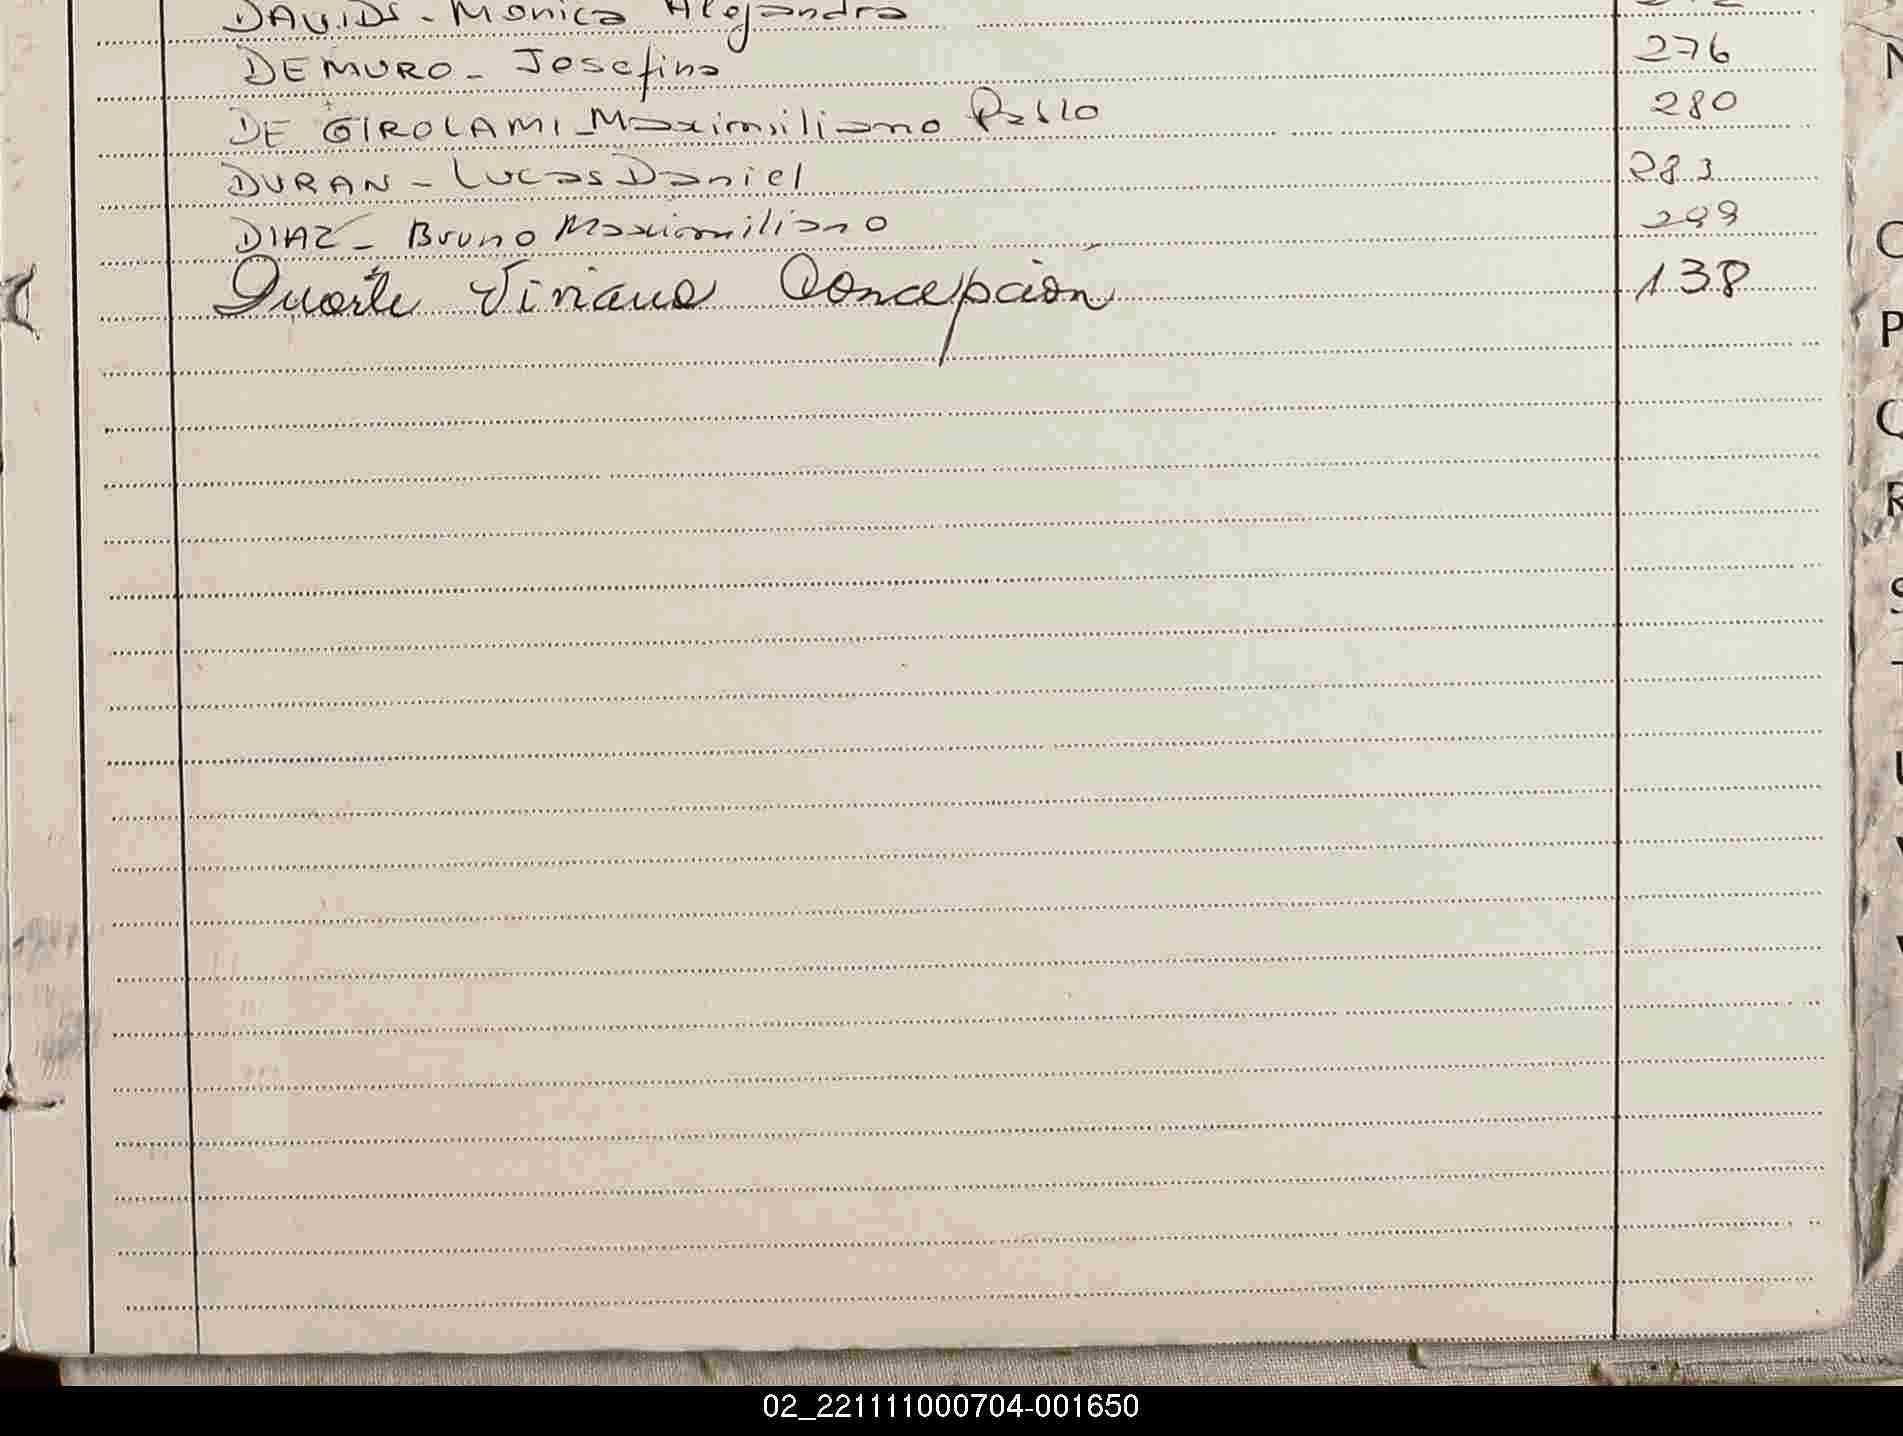 DAVIDS - Monica Alejandra
DEMURO - Josefina 276
DE GIROLAMI - Maximiliano Pablo 280
DURAN - Lucas Daniel 283
DIAZ - Bruno Maximiliano 299
Duarte Viviana Concepción 138
N
O
P
Q
R
S
T
U
V
02_221111000704-001650